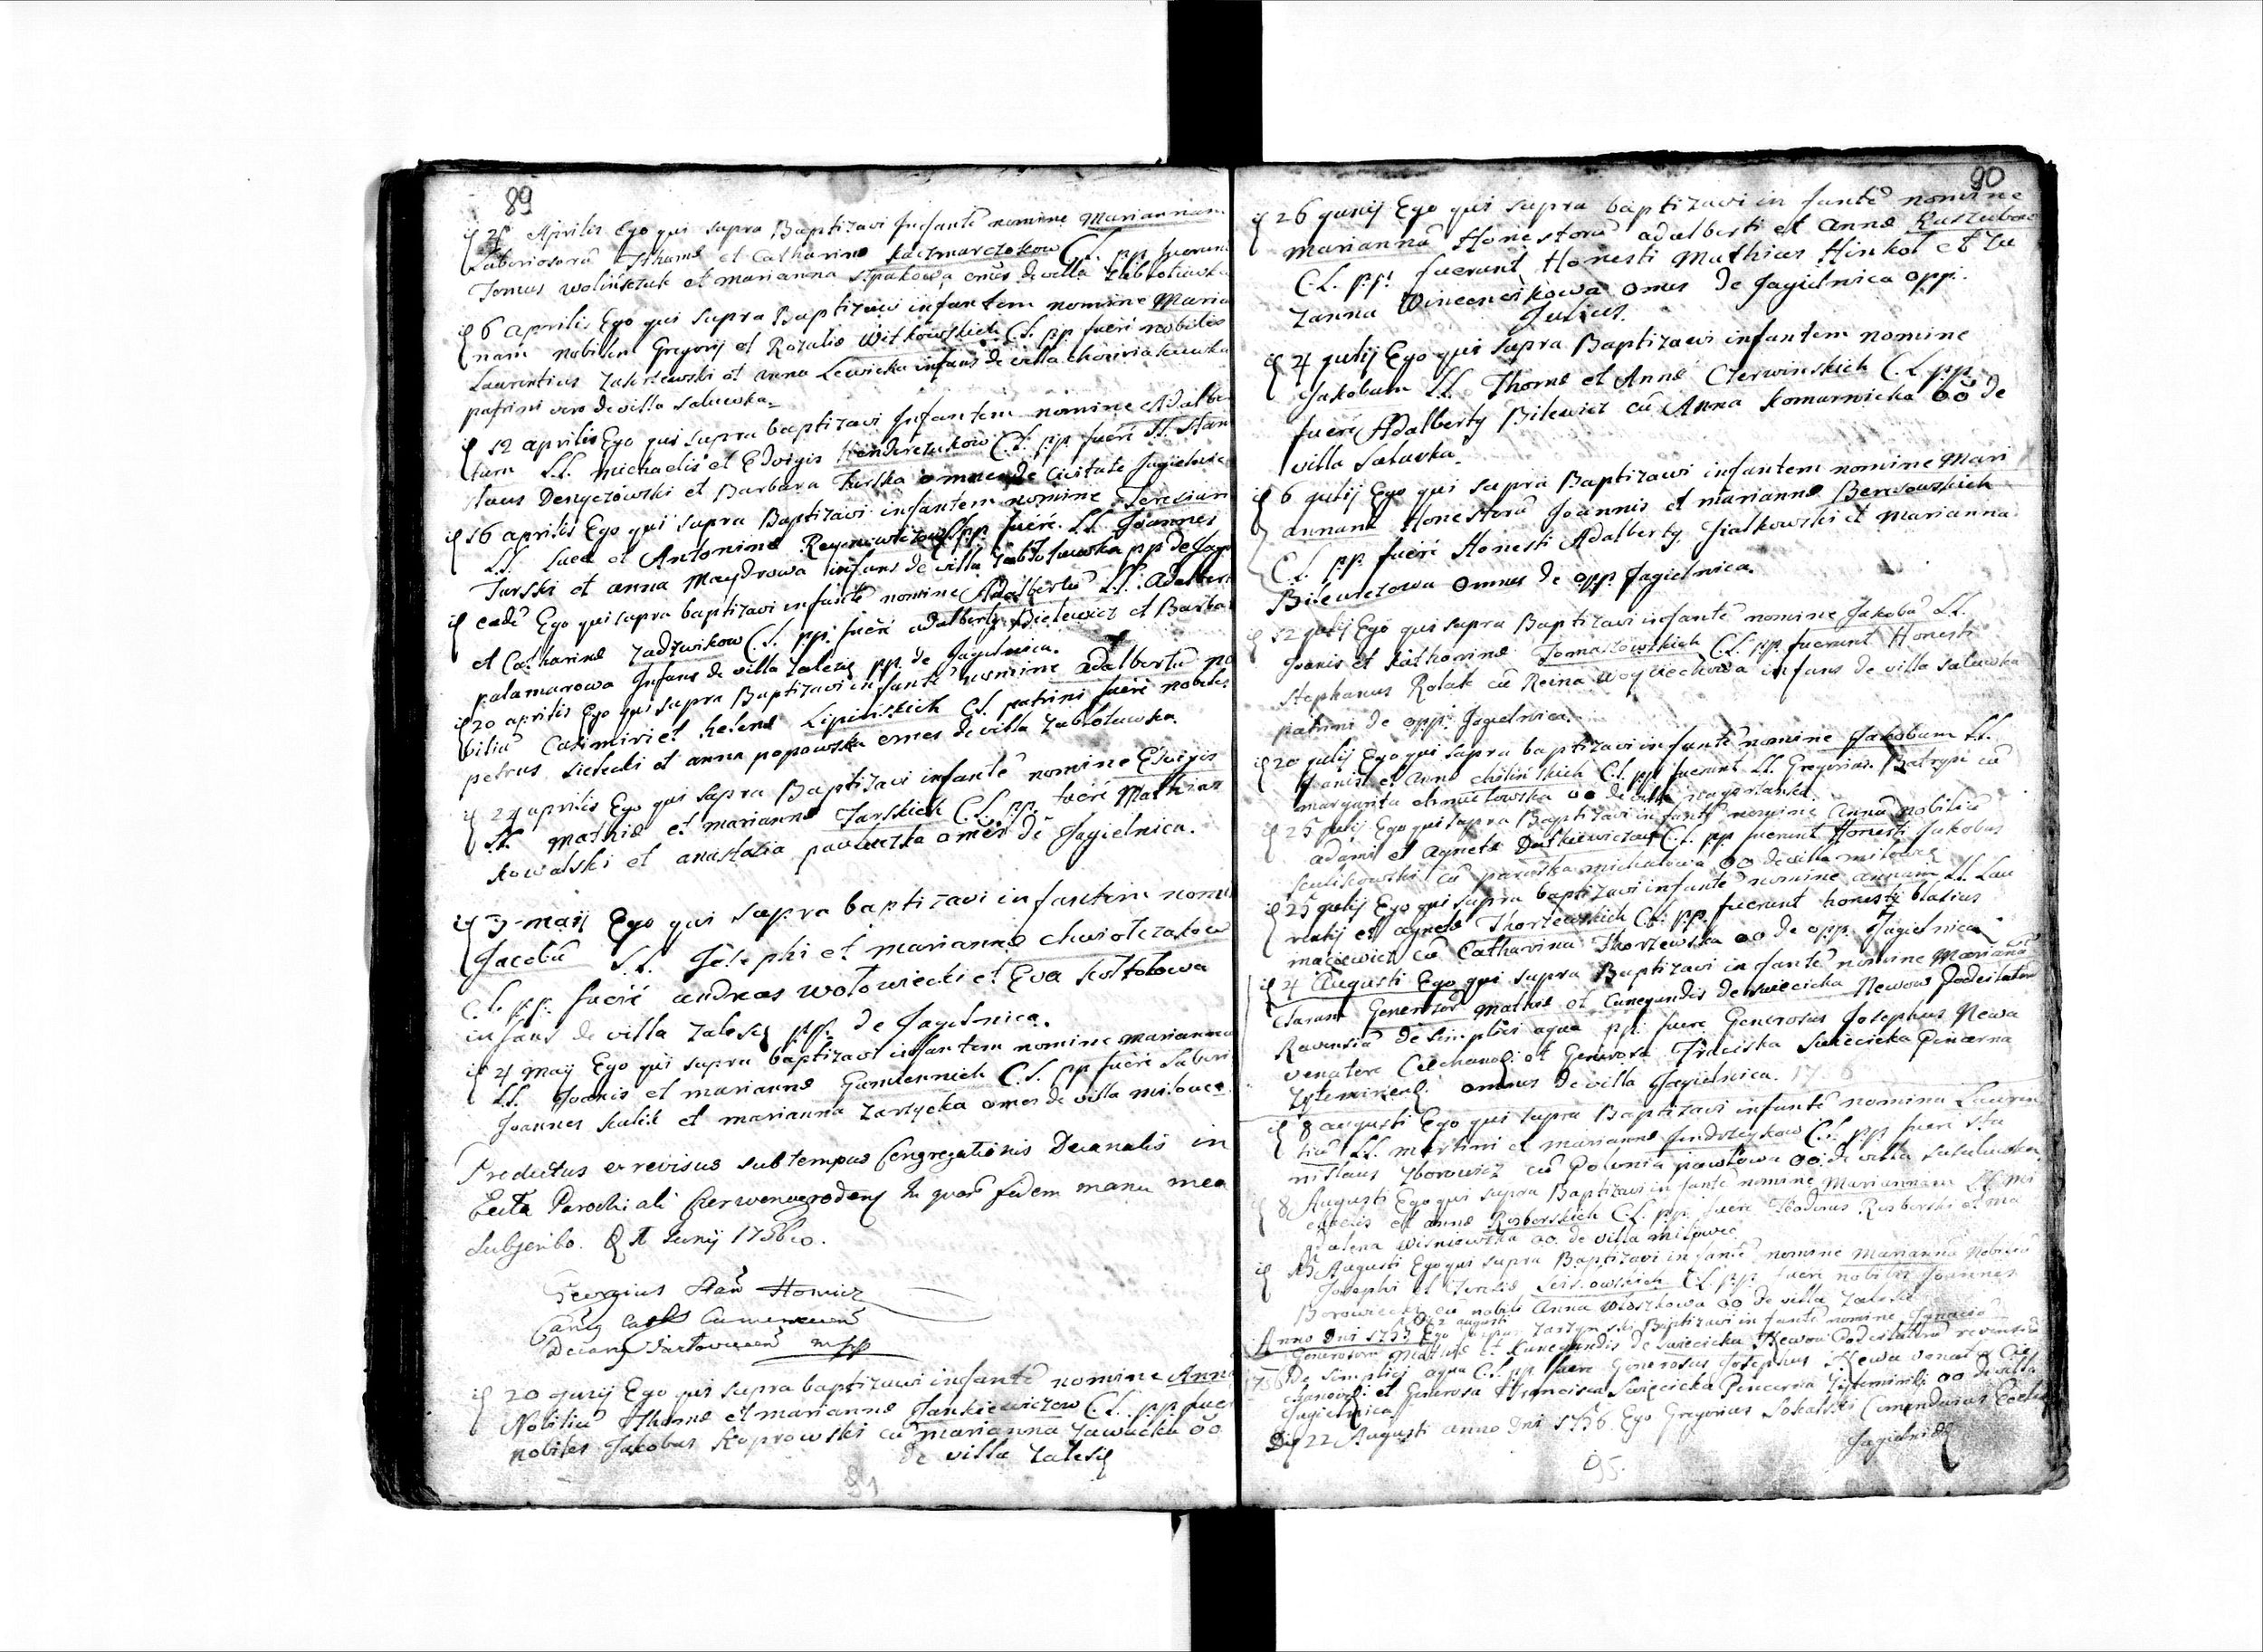 89
Aprilis Ego qui supra Baptizavi Infantē nomine Mariannam
Laboriosorū Thomæ et Catharinæ Kaczmarczokow C.L. pp. fuerunt
Tomas wolinsczuk et marianna Stpakowa omēs de villa Zablotuwka
6 aprilis Ego qui supra Baptizavi infantem nomine Maria
nam nobilium Gregorij et Rozaliæ Witkowskich C.L. pp. fuerē nobiles
Laurentius Zakrzewski et anna Lewicka infans de villa
patrini vero de villa Saluwka
12 aprilis Ego qui supra baptizavi Infantem nomine Adalber
tum LL. Michaelis et Edvigis C.L. pp. fuerē LL. Stani
slaus Denyczowski et Barbara Turska omnes de Civitate Jagielnica
16 aprilis Ego qui supra Baptizavi infantem nomine Teresiam
LL. Lucæ et Antoninæ pp. fuerē LL. Joannes
Turski et anna Maydrowa infans de villa Zablotuwka pp de Jagi
eadē Ego qui supra baptizavi infantē nomine Adalbertū LL. Adalberti
et Catharinæ Zadzwikow C.L. pp. fuerē adalberty Bielewicz et Barbara
palamarowa Infans de villa Zalesie pp. de Jagielnica.
20 aprilis Ego qui supra Baptizavi infantē nomine adalbertū no
biliū Casimiri et helenæ Lipinskich C.L. patrini fuerē nobiles
petrus Sielecki et anna popowska omes de villa Zablotuwka.
24 aprilis Ego qui supra Baptizavi infantē nomine Edvigis
LL. mathiæ et mariannæ Turskich C.L. pp. fuerē Mathias
Kowalski et anastazia pawluczka omēs de Jagielnica.
3 maij Ego qui supra baptizavi infantem nomi
Jacobū LL. Josephi et mariannæ chwiotczakow
C.L. pp. fuerē andreas wolowiecki et Eva Koltolowa
infans de villa Zalesie pp. de Jagielnica.
4 maij Ego qui supra baptizavi infantem nomine mariannam
LL. Joanis et mariannæ Gumiennich C.L. pp fuerē Labori
Joannes Kulik et marianna Zarzycka omes de villa milowce.
Productus et revisus sub tempus Congregationis Decanalis in
Eccta Parochiali Czerwonogrodens In quorū fidem manu mea
Subscribo. D Junij 1756to.
Georgius
20 junij Ego qui supra baptizavi infantē nomine Anna
Nobiliū Thomæ et mariannæ Jankiewiczow C.L. pp fuer
nobiles Jakobus Koprowski cū marianna Zawacka oo
de villa Zalesie
91
90
26 junij Ego qui supra baptizavi in fantē nomine
mariannā Honestorū adalberti et annæ
C.L. pp. fuerunt Honesti Mathias Hinkol et Zu
zanna Wincencikowa omes de Jagielnica opp.
Julius.
4 julij Ego qui supra Baptizavi infantem nomine
Jakobum LL. Thomæ et Annæ Czerwinskich C.L. pp.
fuerē Adalberty Bilewicz cū Anna Komarnicka oo de
villa Saluwka
6 julij Ego qui supra Baptizavi infantem nomine Mari
annam Honestorū Joannis et mariannæ Beresowskich
C.L. pp. fuerē Honesti Adalberty Fialkowski et Marianna
Bilewiczowa omnes de opp. Jagielnica.
12 julij Ego qui supra Baptizavi infantē nomine Jakobū LL.
Joanis et Katharinæ Tomaszowskich C.L. pp. fuerunt Honesti
Stephanus Rolak cū Reina woyciechowa infans de villa Saluwka
patrini de opp. Jagielnica.
20 julij Ego qui supra baptizavi infantē nomine Jakobum LL.
Joanis et annæ chilinskich C.L. pp. fuerunt LL. Gregorius cū
margarita chmielowska oo de villa
25 julij Ego qui supra Baptizavi infantē nomine annā nobiliū
adami et agnetæ Dutkiewiczow C.L. pp fuerunt Honesti Jakobus
cū michalowa oo de villa milowce
25 julij Ego qui supra baptizavi infantē nomine annam LL Lau
rentij et agnetæ Thorzewskich C.L. pp. fuerunt honesti blasius
maciewicz cū Catharina Thorzewska oo de opp. Jagielnica
4 Augusti Ego qui supra Baptizavi infantē nomine Mariānā
Claram Generosorū Mathiæ et Cunegundis de swiecicka Newow
Ravensiū de simplici aqua pp. fuere Generosus Josephus Newa
venator Ciechanov. et Generosa Frāciska Swiecicka Pincerna
Zytomiriens. omnes de villa Jagielnica.
8 augusti Ego qui supra Baptizavi infantē nomine Lauren
tiū LL. martini et mariannæ Jendrzeykow C.L. pp. fuerē Sta
nislaus Zborowicz cū Polonia pawlowa oo de villa
8 Augusti Ego qui supra Baptizavi infantē nomine Mariannam LL. Mi
chaelis et annæ Rosborskich C.L. pp. fuere Teodorus Rosborski et ma
gdalena wisniewska oo de villa milowce
Augusti Ego qui supra Baptizavi infantē nomine Mariannā Nobiliū
Josephi et C.L. pp. fuerē nobilis Joannes
Borowiecki cū nobili Anna oo de villa Zalesie
2 augusti
Anno Dni 1755 Ego Baptizavi infantē nomine Ignaciū
Generosorū Mathiæ et Cunegundis de swiecicka Newow
De Simplici aqua C.L. pp. fuere Generosus Josephus Newa venator Cie
chanov. et Generosa Francisca Swiecicka Pincerna Zytomiriens. oo de villa
Jagielnica
Die 22 Augusti anno Dni 1756 Ego Gregorius Sokalski Comendarius Eccle
Jagielnice
95.